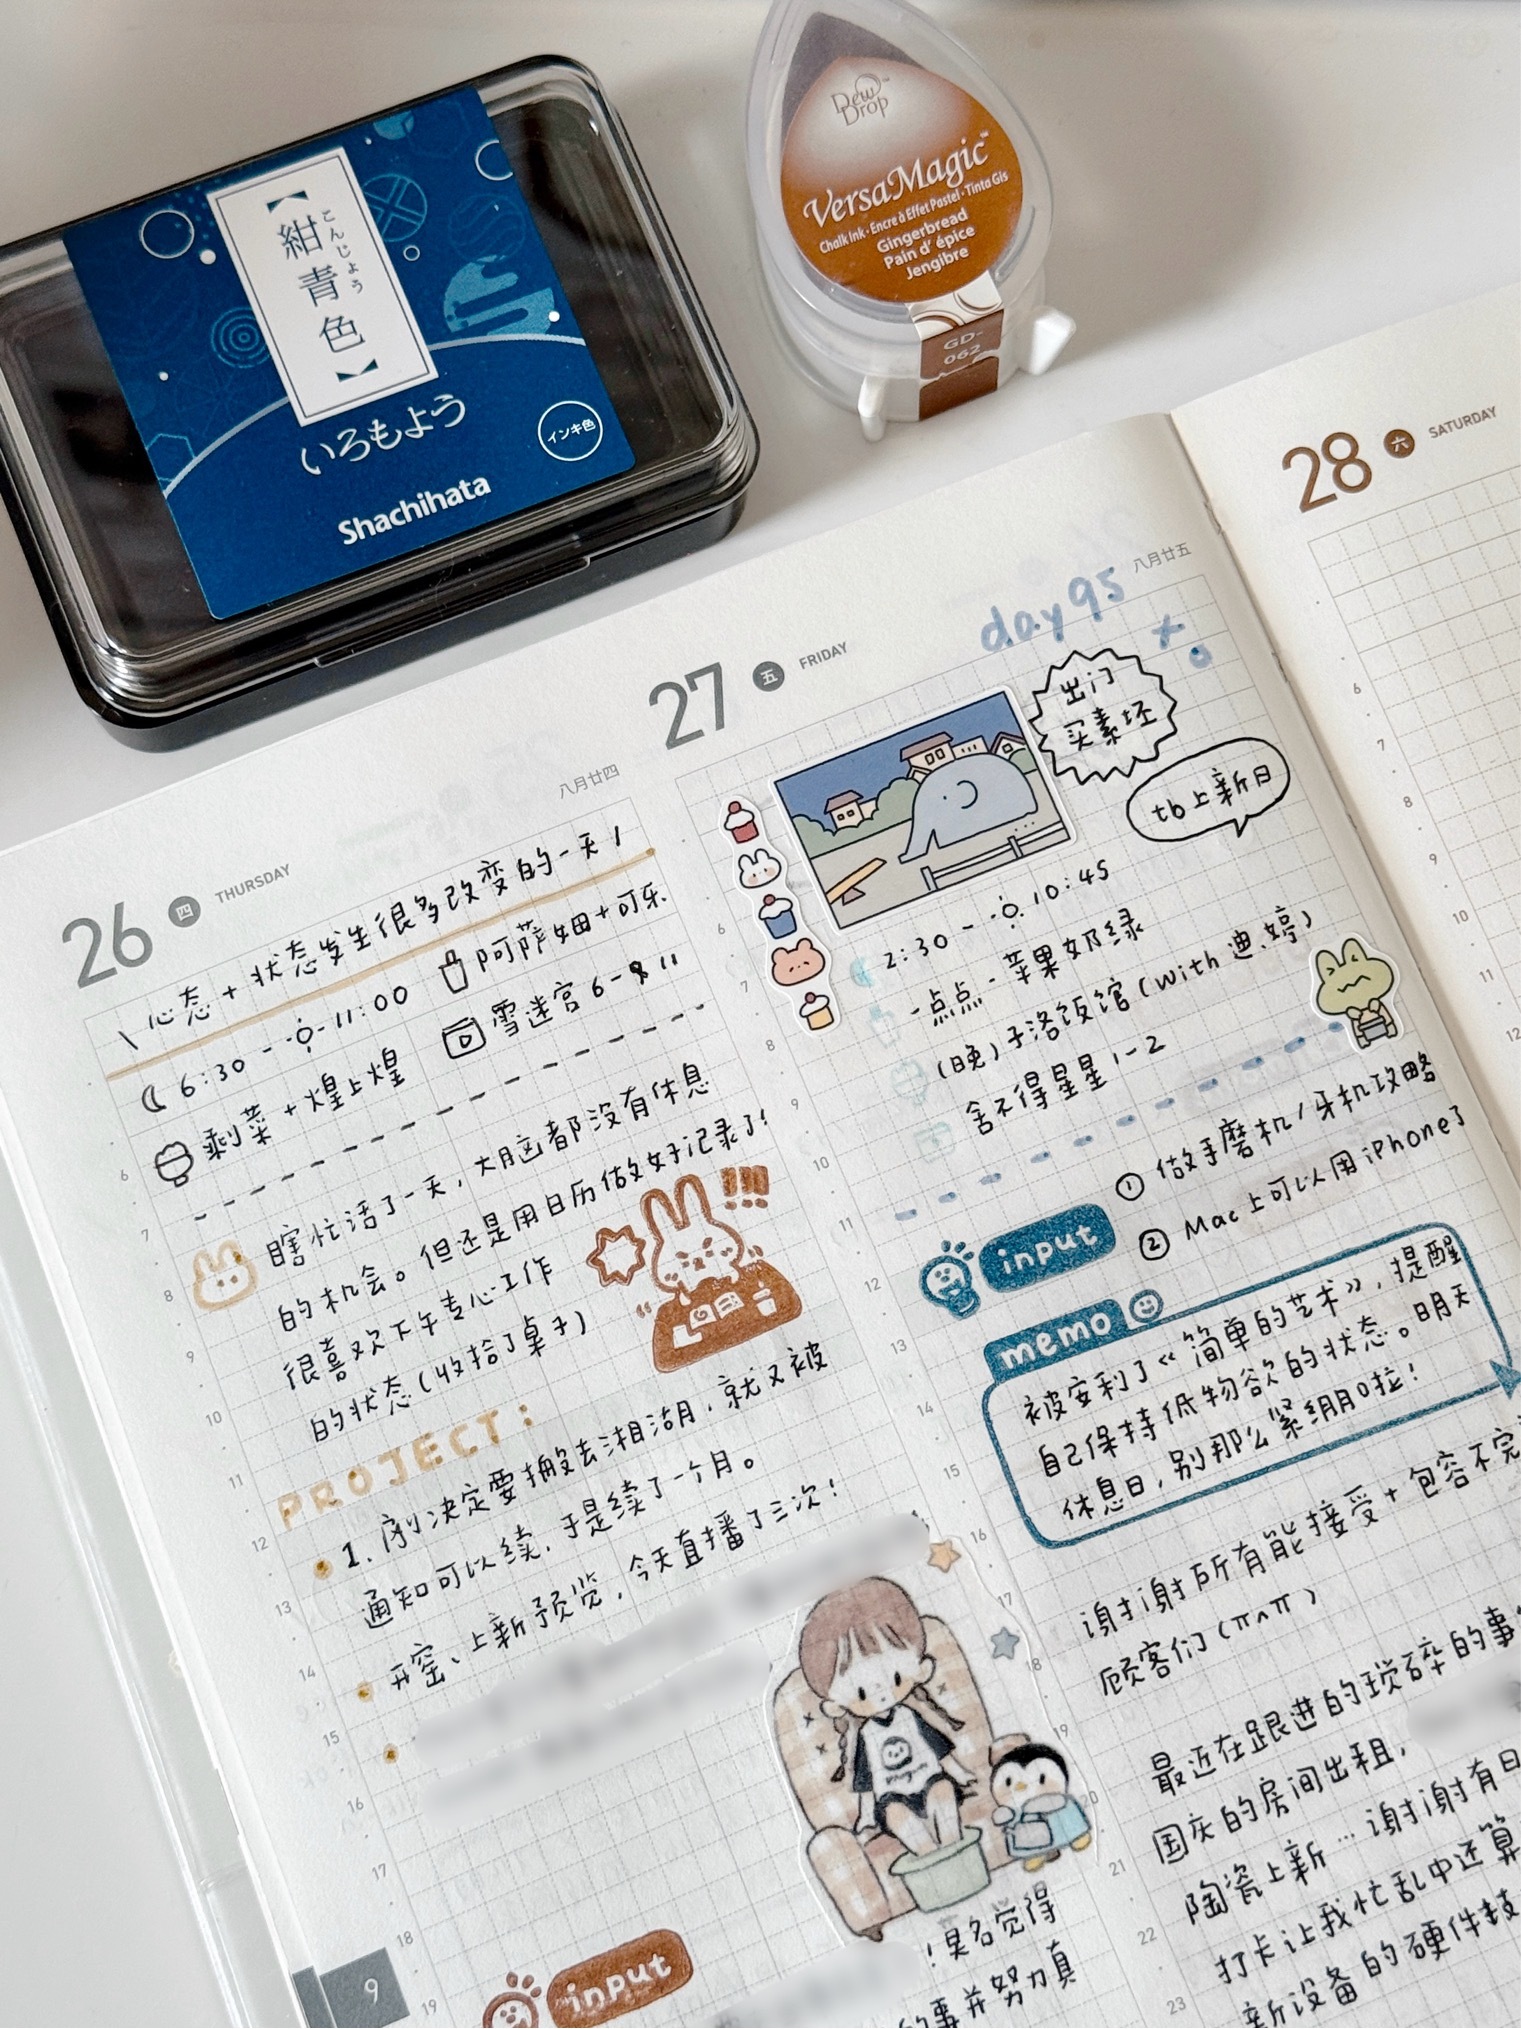 【紺青色】
こんじょう
いろもよう
インキ色
Shachihata
Dew Drop
VersaMagic™
Chalk Ink · Encre à Effet Pastel · Tinta Gis
Gingerbread
Pain d' épice
Jengibre
GD-
062
26 四 THURSDAY
八月廿四
\ 心态 + 状态发生很多改变的一天 /
6:30 - - 11:00
阿萨姆+可乐
剩菜 + 煌上煌
雪迷宫 6-8 11
瞎忙活了一天，大脑都没有休息
的机会。但还是用日历做好记录了!
很喜欢下午专心工作
的状态(收拾了桌子)
!!!
PROJECT:
1. 刚决定要搬去湘湖，就又被
通知可以续，于是续了一个月。
开窑、上新预览，今天直播了三次!
input
9
27 五 FRIDAY
day 95
八月廿五
出门
买素坯
tb上新日
2:30 - - 10:45
一点点 - 苹果奶绿
(晚)于洛饭馆(with 迪、婷)
舍不得星星 1-2
input
① 做手磨机/牙机攻略
② Mac上可以用iPhone了
memo
被安利了《简单的艺术》，提醒
自己保持低物欲的状态。明天
休息日，别那么紧绷啦!
谢谢所有能接受+包容不完
顾客们(π^π)
最近在跟进的琐碎的事
国庆的房间出租，
陶瓷上新…谢谢有日
打卡让我忙乱中还算
新设备的硬件技
!莫名觉得
的事并努力真
28 六 SATURDAY
6
7
8
9
10
11
12
6
7
8
9
10
11
12
13
14
15
16
17
18
19
20
21
22
23
6
7
8
9
10
11
12
13
14
15
16
17
18
19